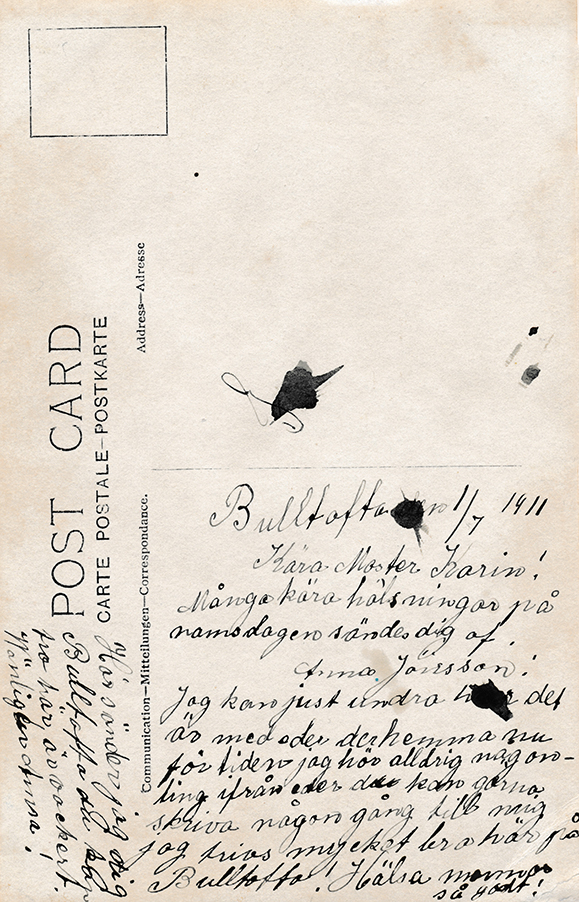 POST CARD
CARTE POSTALE–POSTKARTE
Address—Adresse
Communication—Mitteilungen—Correspondance.
Bulltofta den 1/7 1911
Kära Moster Karin!
Många kära hälsningar på
namsdagen sändes dig af.
Anna Jönsson!
Jag kan just undra hur det
är med eder derhemma nu
för tiden jag hör alldrig någon-
ting ifrån eder du kan gärna
skriva någon gång till mig
jag trivs mycket bra här på
Bulltofta! Hälsa mormor
så godt!
Här sänder jag dig
Bulltofta du kan
tro här är vackert.
Vänligen Anna!